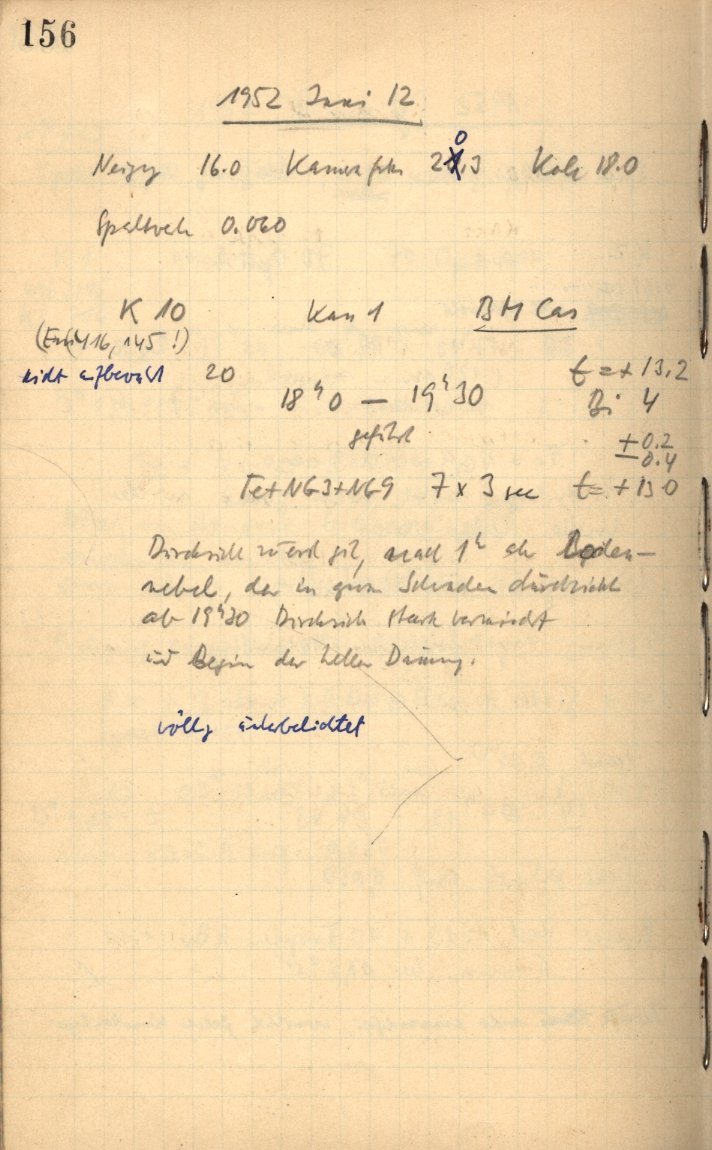 156
1952 Juni 12
Neigg 16.0 Kamera fok 20.3 Koll 18.0
Spaltweite 0.060
K 10 Kas 1 BM Cas
(Em 416, 145 !)
nicht aufbewahrt 20 t = + 13,2
18ʰ0 — 19ʰ30 Bi 4
geführt + 0.2
− 0.4
Fe+NG3+NG9 7 x 3 sec t = + 13 0
Durchsicht gut, nach 1ʰ Boden-
nebel, der in Schwaden durchzieht
ab 19ʰ30 Durchsicht stark vermindert
und Beginn der hellen Dämmg.
völlig unterbelichtet